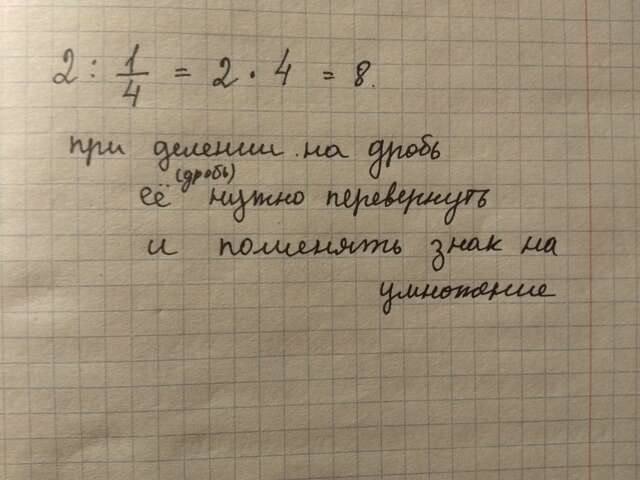 2 : 1/4 = 2 · 4 = 8.
при делении на дробь
(дробь)
её нужно перевернуть
и поменять знак на
умножение